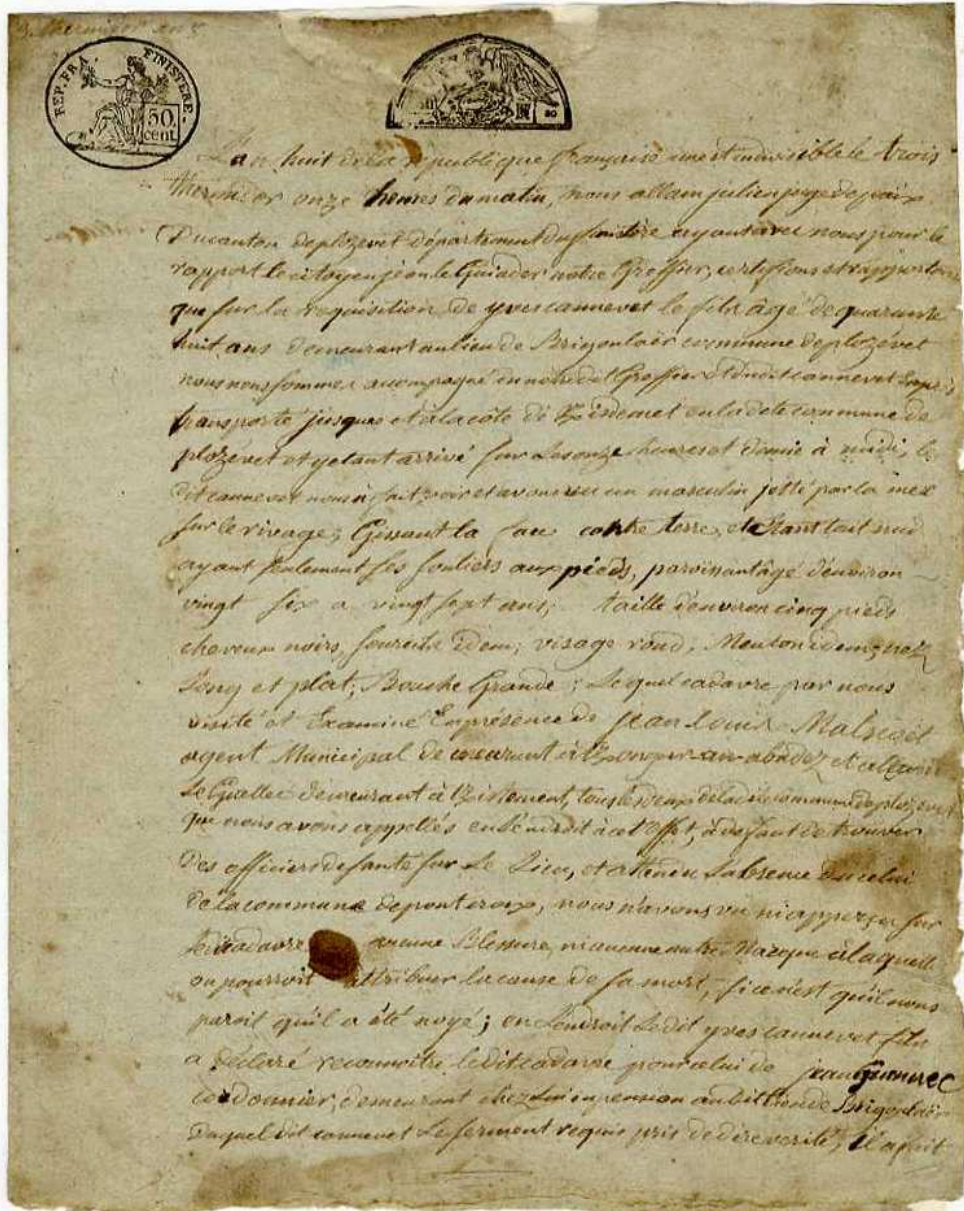 3 thermidor an 8
REP. FRA. FINISTERE.
50 cent.
L'an huit de la république française une et indivisible le trois
thermidor onze heures du matin, nous allain julien juge de paix
Du canton de plozevet département du finistère ayant avec nous pour le
rapport le citoyen jean le Guiader notre Greffier, certifions et rapportons
que sur la requisition de yves cannevet le fils âgé de quarante
huit ans demeurant au lieu de Brigoulaër commune de plozévet
nous nous sommes accompagné de notre dit Greffier et dudit cannevet
transporté jusques et à la côte de en la dete commune de
plozévet et y etant arrivé sur les onze heures et demie à midi, le
dit cannevet nous a fait voir et avons vu un masculin jetté par la mer
sur le rivage; Gissant la face contre terre, et etant tout nud
ayant seulement ses souliers aux pieds, paroissant âgé d'environ
vingt six a vingt sept ans; taille d'environ cinq pieds
cheveux noirs, sourcils idem; visage rond; Menton idem; nez
Long et plat; Bouche Grande; Lequel cadavre par nous
visité et Examiné En présence de jean Louis
agent Municipal demeurant à et
Le Guellec demeurant à tous les deux de la dite commune de plozevet
que nous avons appellés en L'endroit à cet Effet, à defaut de trouver
Des officiers de santé sur Le Lieu, et attendu L'absence de celui
de la commune de pontcroix, nous n'avons vu ni apperçu sur
ledit cadavre aucune Blessure, ni aucune autre Marque à laquelle
on pourroit attribuer la cause de sa mort, si ce n'est qu'il nous
paroit qu'il a été noyé; en L'endroit Ledit yves cannevet fils
a déclaré reconnoitre ledit cadavre pour celui de jean
cordonnier, demeurant chez Lui en pension audit lieu de Brigoulaër
Duquel dit cannevet Le serment requis pris de dire verité, il a fait